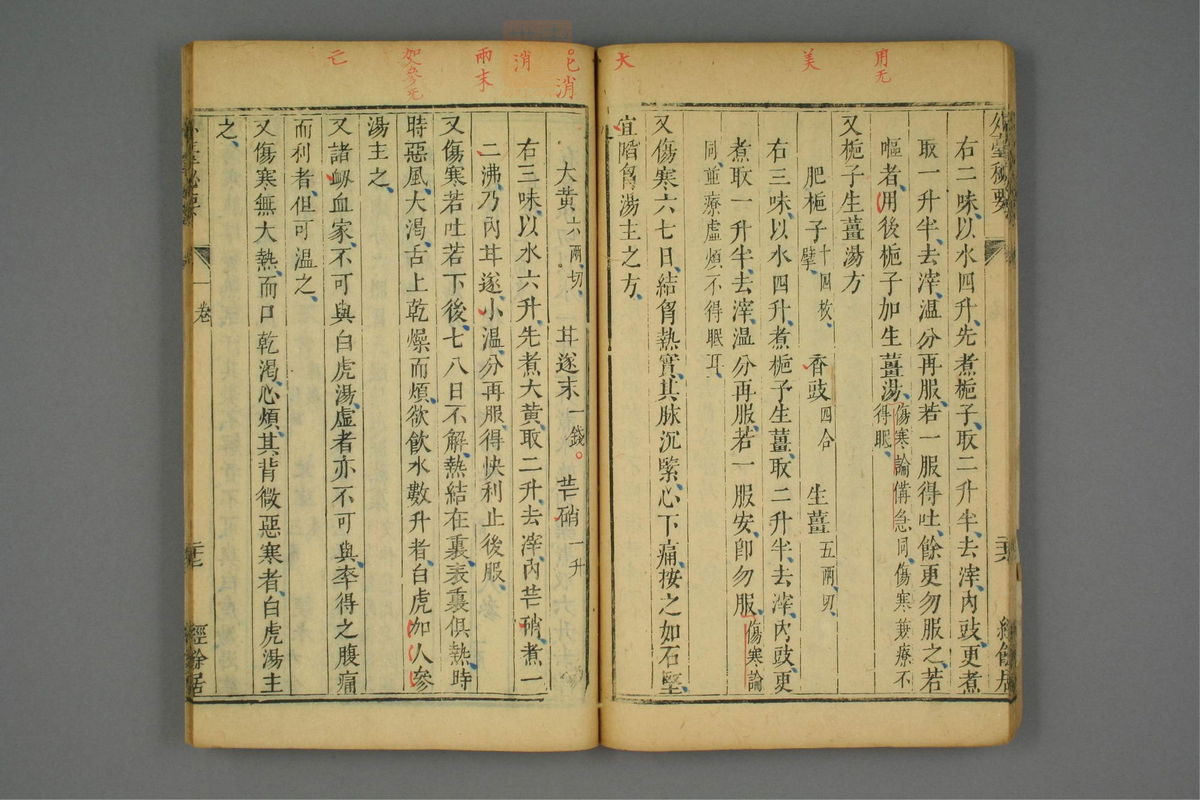 用无
美
大
外臺秘要
右二味以水四升先煮梔子取二升半去滓內豉更煮
取一升半去滓溫分再服若一服得吐餘更勿服之若
嘔者用後梔子加生薑湯傷寒論備急同傷寒兼療不
得眠
又梔子生薑湯方
肥梔子十四枚擘 香豉四合 生薑五兩切
右三味以水四升煮梔子生薑取二升半去滓內豉更
煮取一升半去滓溫分再服若一服安即勿服傷寒論
同兼療虛煩不得眠耳
又傷寒六七日結胷熱實其脉沉緊心下痛按之如石堅
宜陷胷湯主之方
消
消
兩末
大黃六兩切 甘遂末一錢 芒硝一升
右三味以水六升先煮大黃取二升去滓內芒硝煮一
二沸乃內甘遂小溫分再服得快利止後服
又傷寒若吐若下後七八日不解熱結在裏表裏俱熱時
時惡風大渴舌上乾燥而煩欲飲水數升者白虎加人參
湯主之
又諸衂血家不可與白虎湯虛者亦不可與卒得之腹痛
而利者但可溫之
又傷寒無大熱而口乾渴心煩其背微惡寒者白虎湯主
之
一卷
經餘居